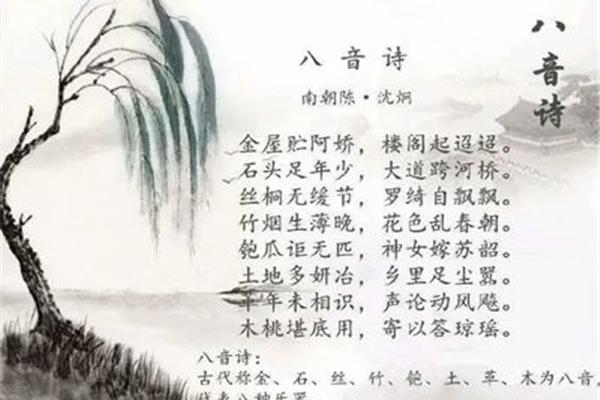 八音诗
八 音 诗
南朝陈·沈炯
金屋贮阿娇，楼阁起迢迢。
石头足年少，大道跨河桥。
丝桐无缓节，罗绮自飘飘。
竹烟生薄晚，花色乱春朝。
匏瓜讵无匹，神女嫁苏韶。
土地多妍冶，乡里足尘嚣。
革年未相识，声论动风飚。
木桃堪底用，寄以答琼瑶。
八音诗：
古代称金、石、丝、竹、匏、土、革、木为八音，